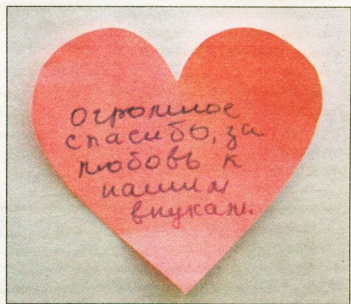 огромное
спасибо, за
любовь к
нашим
внукам.